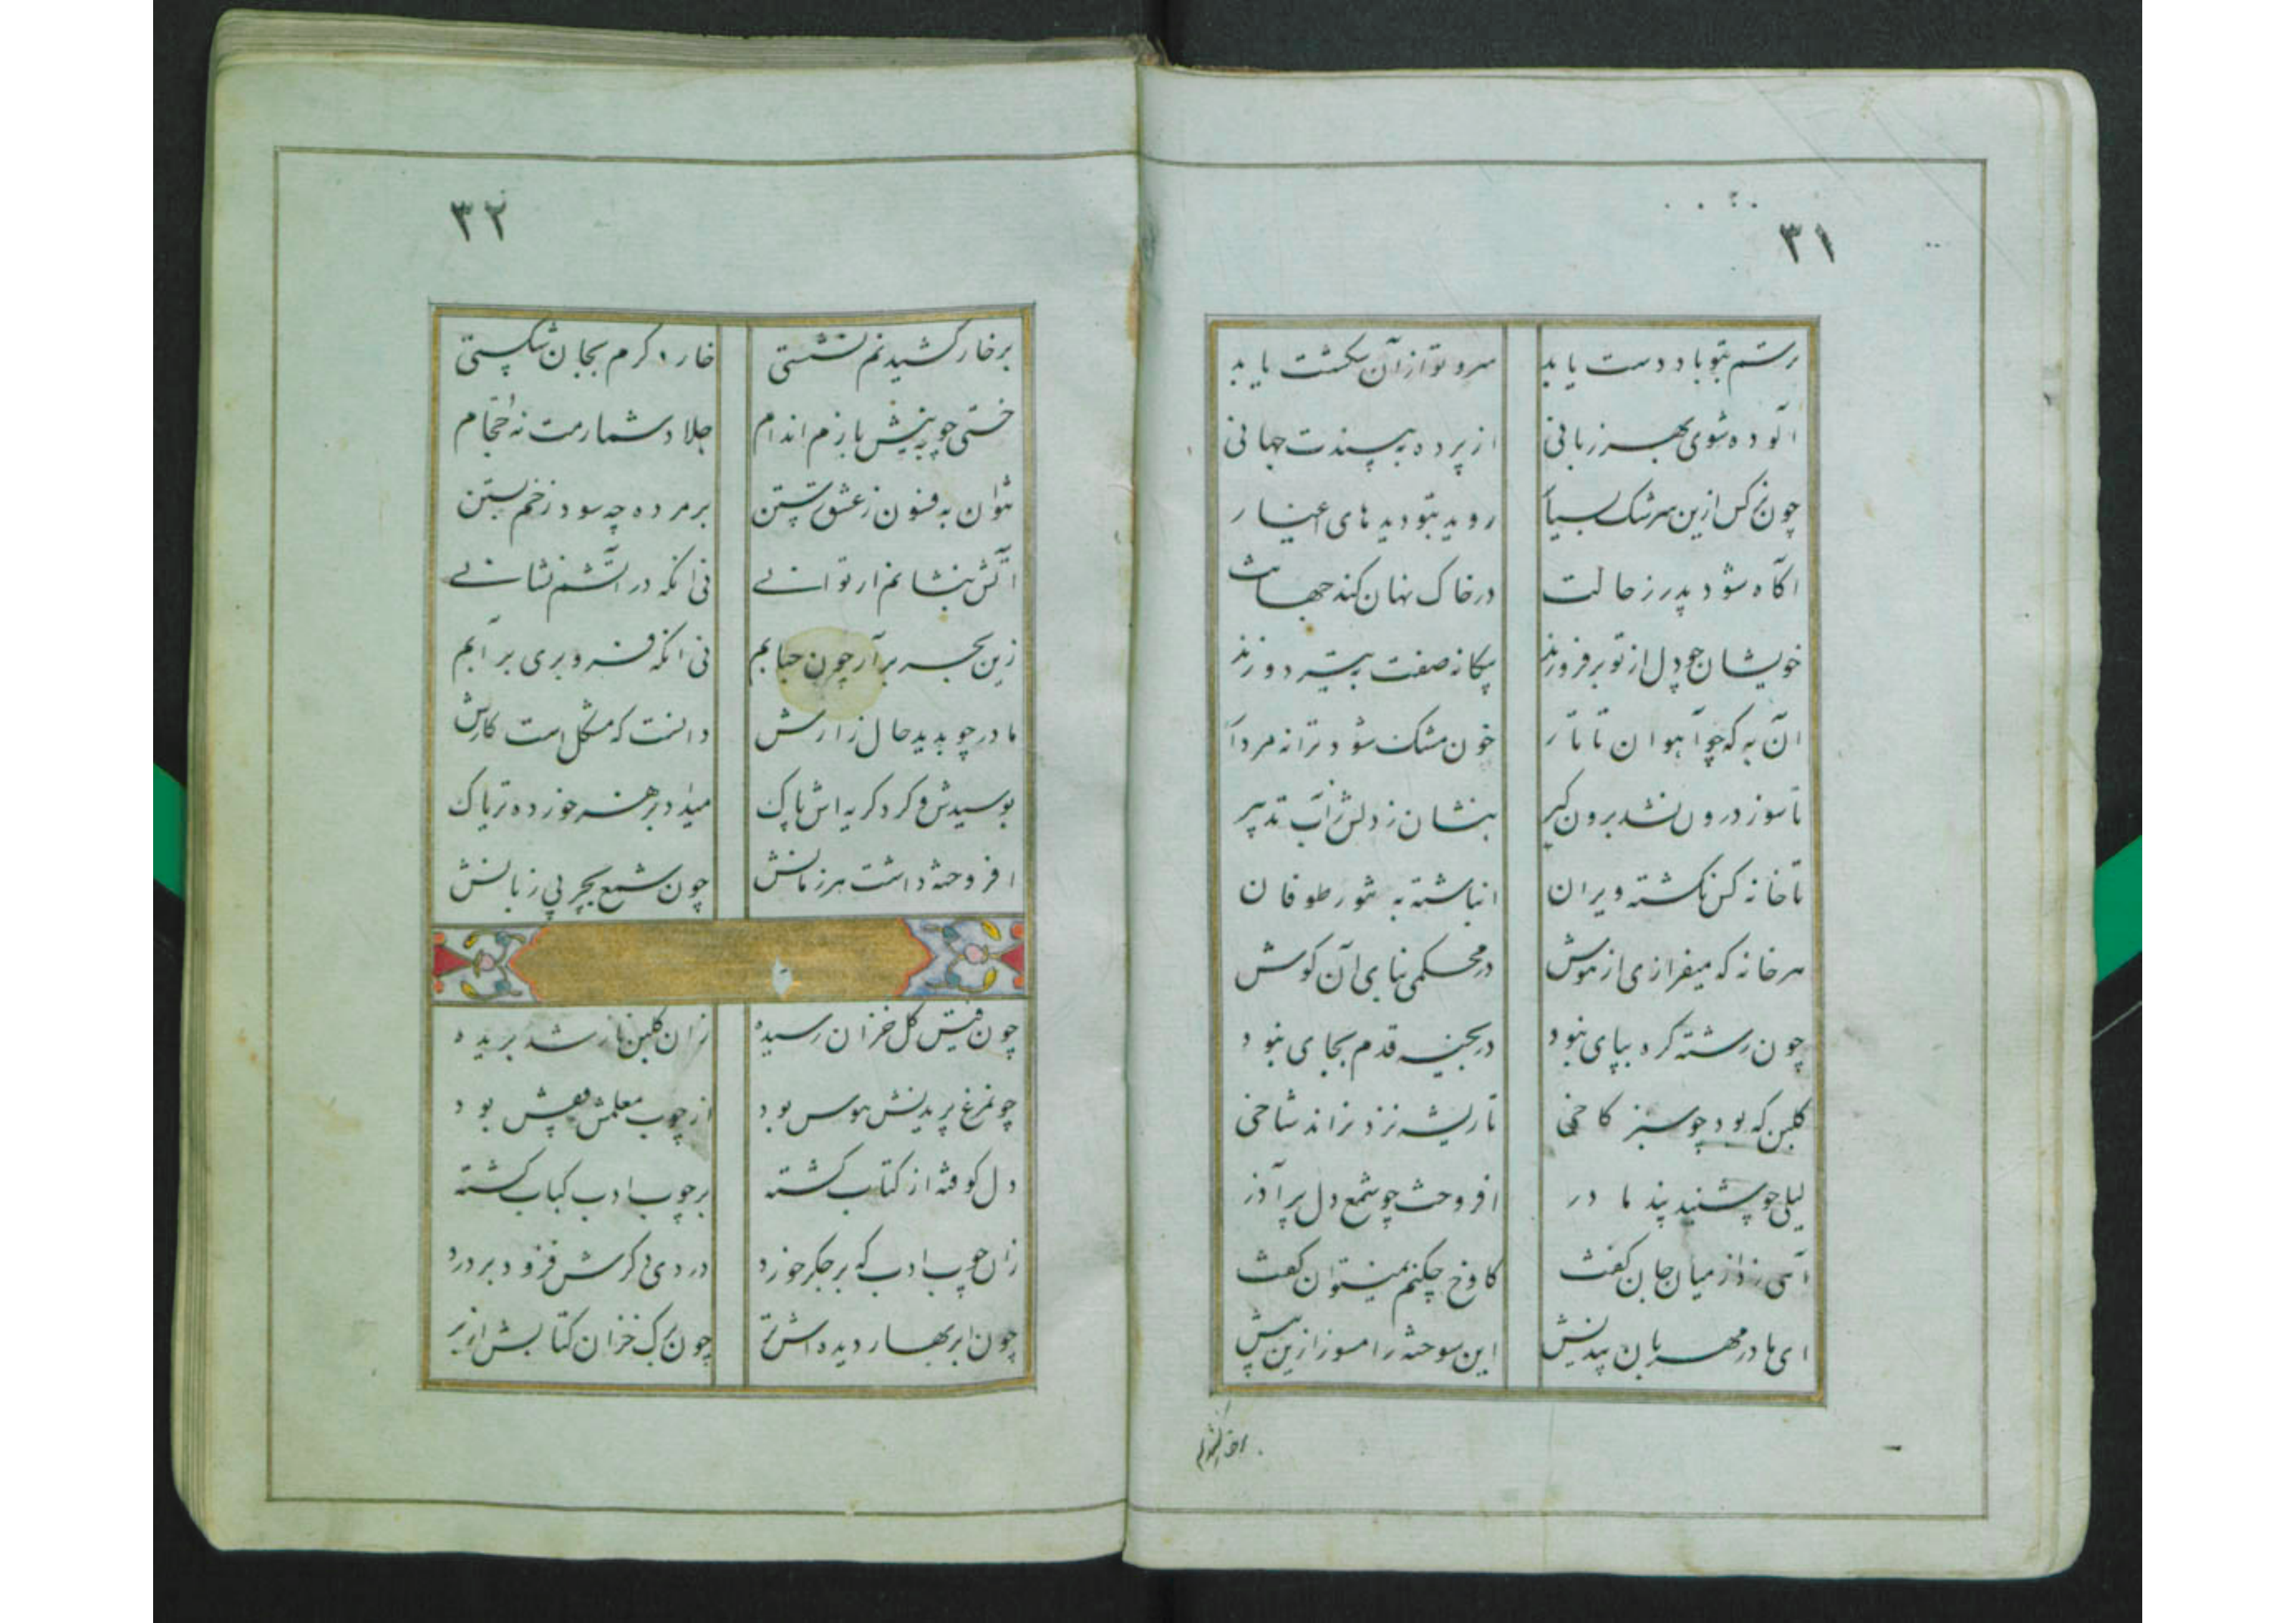 ۳۱
ترستم بتو باد دست یابد سرو تو از آن شکست یابد
آلوده شوی بهر زبانی از پرده به پسندت جهانی
چون نرکس ازین سرشک بسیار روید بتو دیدهای اغیار
آکاه شود پدر ز حالت در خاک نهان کند جمالت
خویشان چو دل از تو برفروزند پیکانه صفت به تیر دوزند
آن به که چو آهوان تاتار خون مشک شود ترا نه مردار
تا سوز درون نشد برون کیر بنشان ز دلش ز آب تدبیر
تا خانه کس نکشته ویران انباشته به تنور طوفان
هر خانه که میفرازی از هوش در محکمی بنای آن کوش
چون رشته کره بپای نبود در بخیه قدم بجای نبود
کلبن که بود چو سبز کاخی تا ریشه نزد نراند شاخی
لیلی چو شنید پند مادر افروخت چو شمع دل پر آذر
آمی زد از میان جان کفت کاوخ چکنم نمیتوان کفت
ای مادر مهربان بیندیش این سوخته را مسوز ازین پیش
۳۲
بر خار کشیدنم نشستی خار دکرم بجان شکستی
خستی چو به نیش بازم اندام جلاد شمارمت نه حجام
نتوان به فسون ز عشق رستن بر مرده چه سود زخم بستن
آتش بنشانم ار توانی نی آنکه در آتشم نشانی
زین بحر برآر چون حبابم نی آنکه فرو بری بر آبم
مادر چو بدید حال زارش دانست که مشکل است کارش
بوسیدش و کرد کریه اش پاک میداد بزهر خورده تریاک
افروخته داشت هر زمانش چون شمع بچرب زبانش
چون قیس کل خزان رسیده زان کلبن ناز شد بریده
چو مرغ پریدنش هوس بود از چوب معلمش قفس بود
دل کوفته از کتاب کشته بر چوب ادب کباب کشته
زان چوب ادب که بر جکر خورد دردی دکرش فزود بر درد
چون ابر بهار دیده اش تر چون برک خزان کتابش از بر